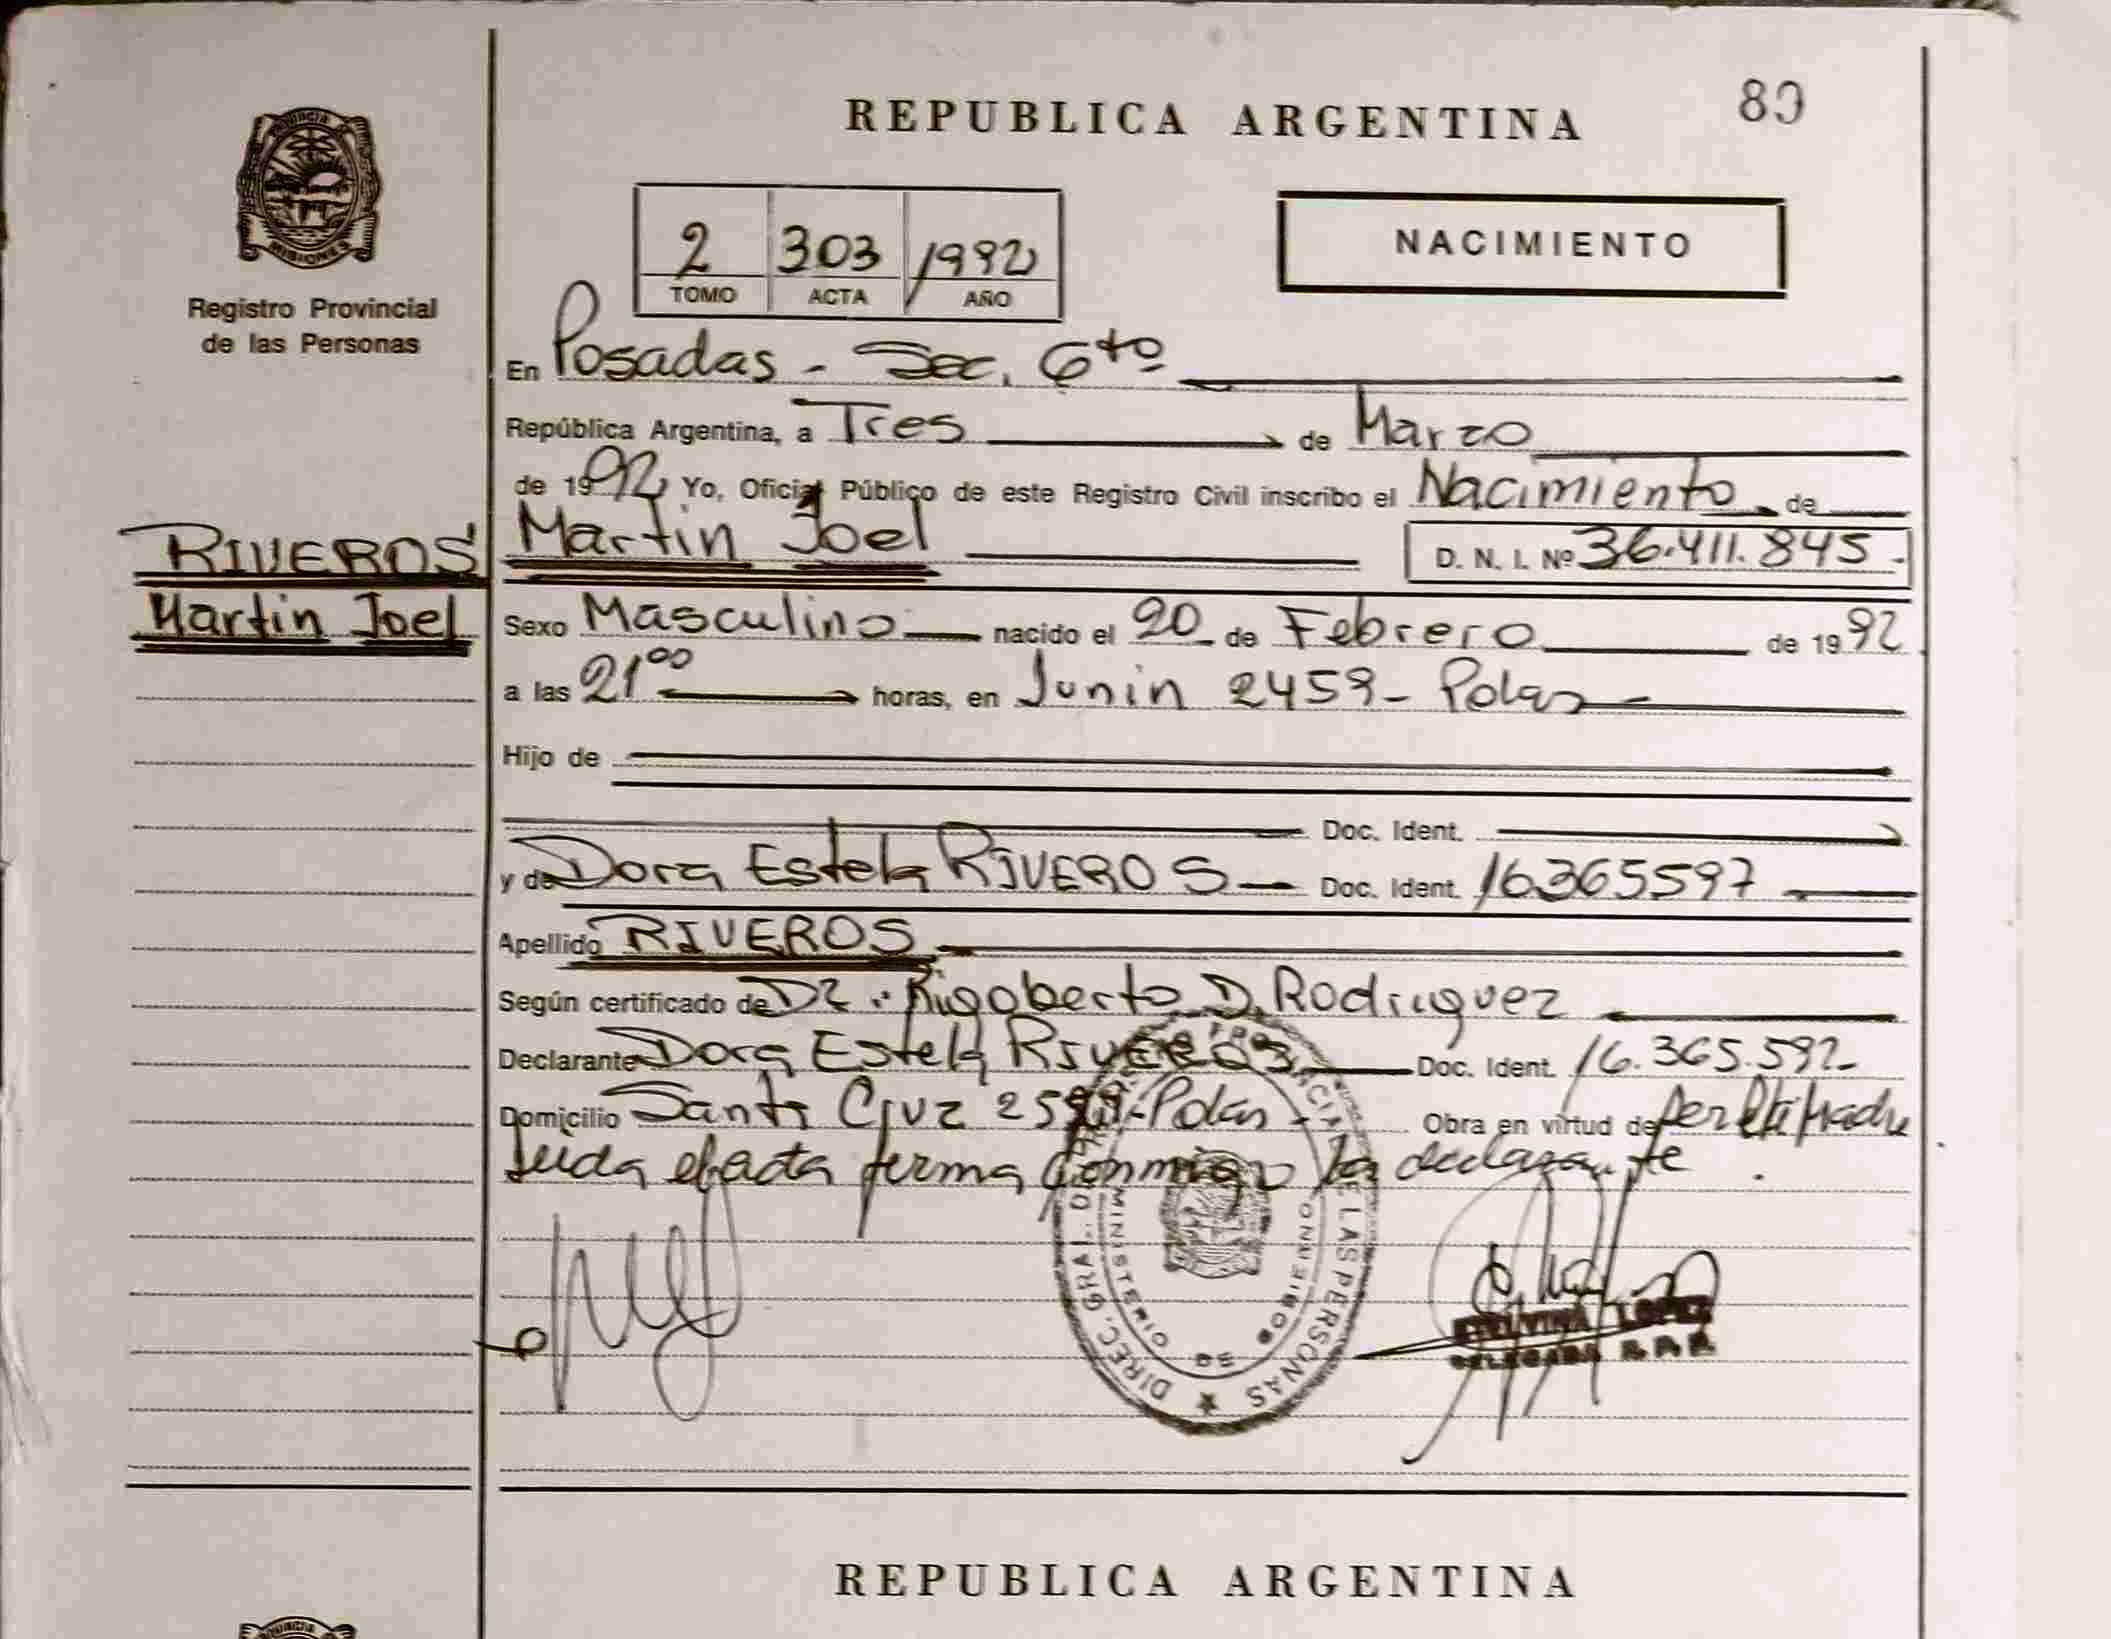 REPUBLICA ARGENTINA
80
Registro Provincial
de las Personas
2 303 1992
TOMO ACTA AÑO
NACIMIENTO
En Posadas - Sec. 6to
República Argentina, a Tres de Marzo
de 1992 Yo, Oficial Público de este Registro Civil inscribo el Nacimiento de
RIVEROS
Martin Joel
Martin Joel D. N. I. Nº 36.411.845.
Sexo Masculino nacido el 20 de Febrero de 1992
a las 21⁰⁰ horas, en Junin 2459 - Pdas -
Hijo de
Doc. Ident.
y de Dora Estela RIVEROS Doc. Ident. 16365597
Apellido RIVEROS
Según certificado de Dr. Rigoberto D. Rodriguez
Declarante Dora Estela Riveros Doc. Ident. 16.365.597
Domicilio Santa Cruz - Pdas - Obra en virtud de ser la Madre
Leida el acta firma conmigo la declarante.
DIREC. GRAL. DE LAS PERSONAS
MINISTERIO DE GOBIERNO
LOPEZ
REPUBLICA ARGENTINA